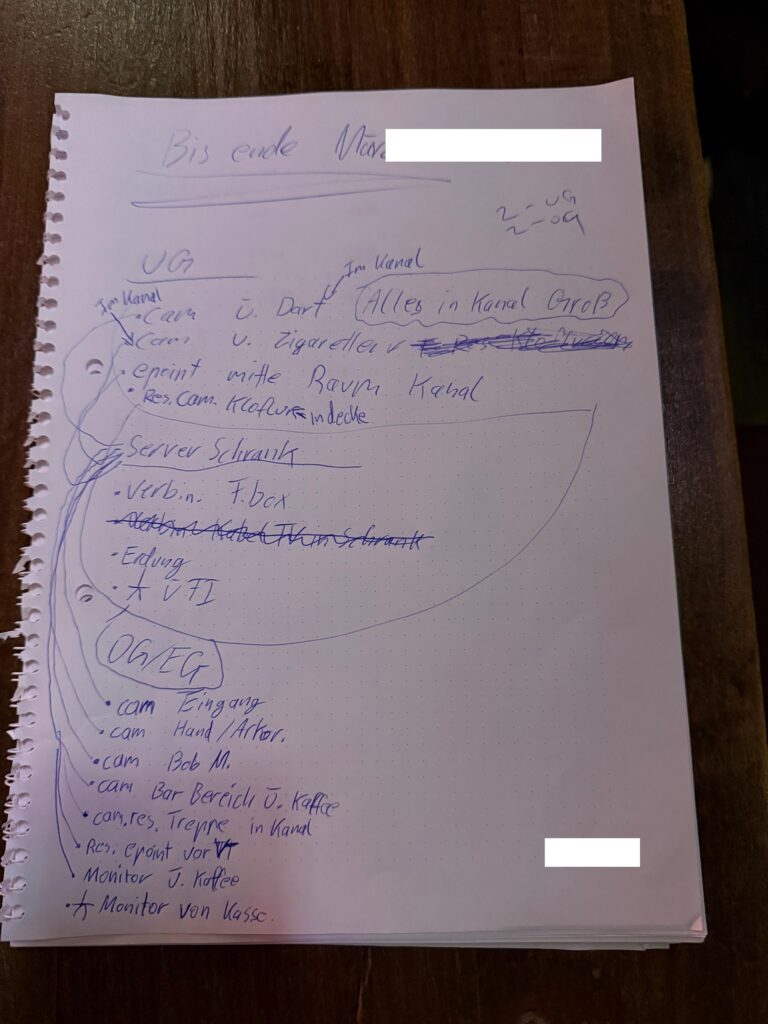 Bis ende
2 - UG
2 - OG
UG
Im Kanal
Im Kanal
• Cam Ü. Dart
Alles in Kanal Groß
Cam Ü. Zigaretten
• epoint mitte Raum Kanal
• Res. Cam. Kloflur in decke
Server Schrank
• Verbin. F.box
• Erdung
• ÜFI
OG/EG
• cam Eingang
• cam Hand/
• cam Bob M.
• cam Bar Bereich Ü. Kaffee
• cam. res. Treppe in Kanal
• Res. epoint vor VT
Monitor Ü. Kaffee
• Monitor von Kasse.